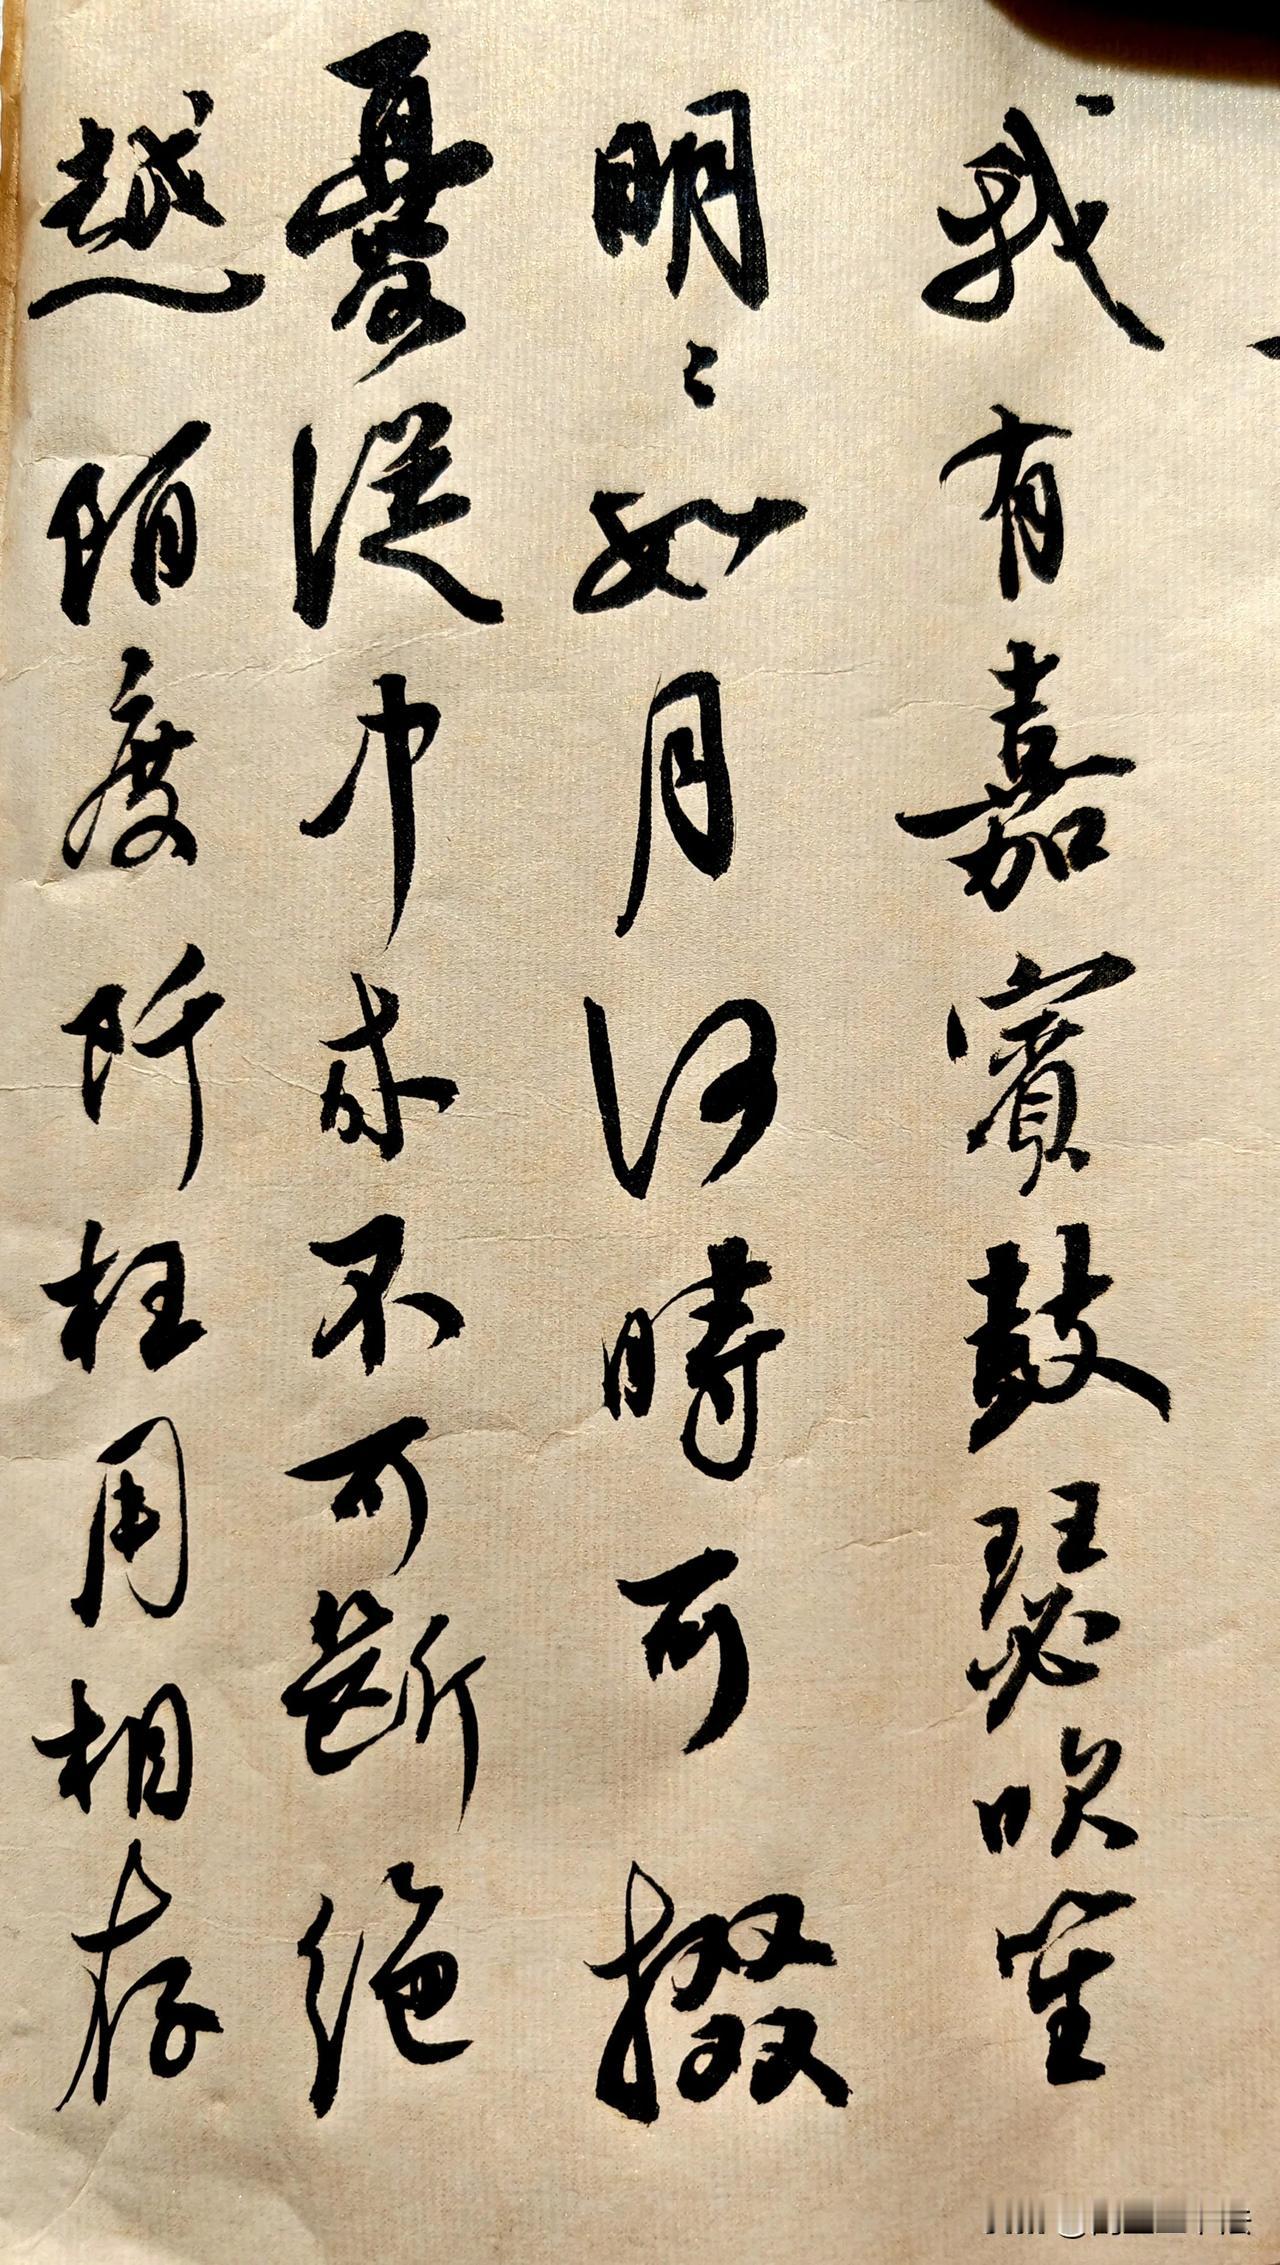 我有嘉賓鼓瑟吹笙
明〻如月何時可掇
憂從中來不可斷絶
越陌度阡枉用相存